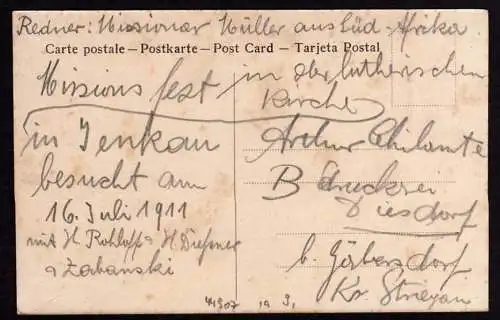 Redner: Missionar Müller aus Süd-Afrika
Carte postale – Postkarte – Post Card – Tarjeta Postal
Missions fest in der lutherischen
Kirche
in Jenkau
besucht am
16. Juli 1911
mit H. Rohloff u H.
u Zabanski
Arthur
B druckerei
Diesdorf
b. Gäbersdorf
Kr. Striegau
41307 19 3,